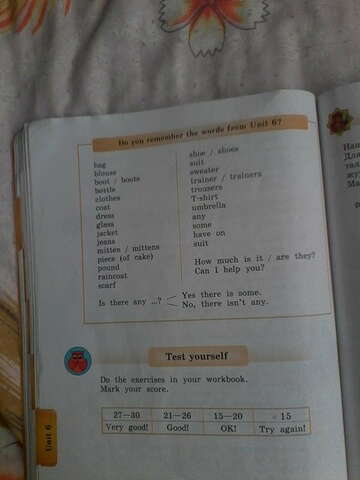 Do you remember the words from Unit 6?
bag
blouse
boot / boots
bottle
clothes
coat
dress
glass
jacket
jeans
mitten / mittens
piece (of cake)
pound
raincoat
scarf
shoe / shoes
suit
sweater
trainer / trainers
trousers
T-shirt
umbrella
any
some
have on
suit
How much is it / are they?
Can I help you?
Is there any ...?
Yes there is some.
No, there isn't any.
Test yourself
Do the exercises in your workbook.
Mark your score.
27—30 21—26 15—20 15
Very good! Good! OK! Try again!
Unit 6